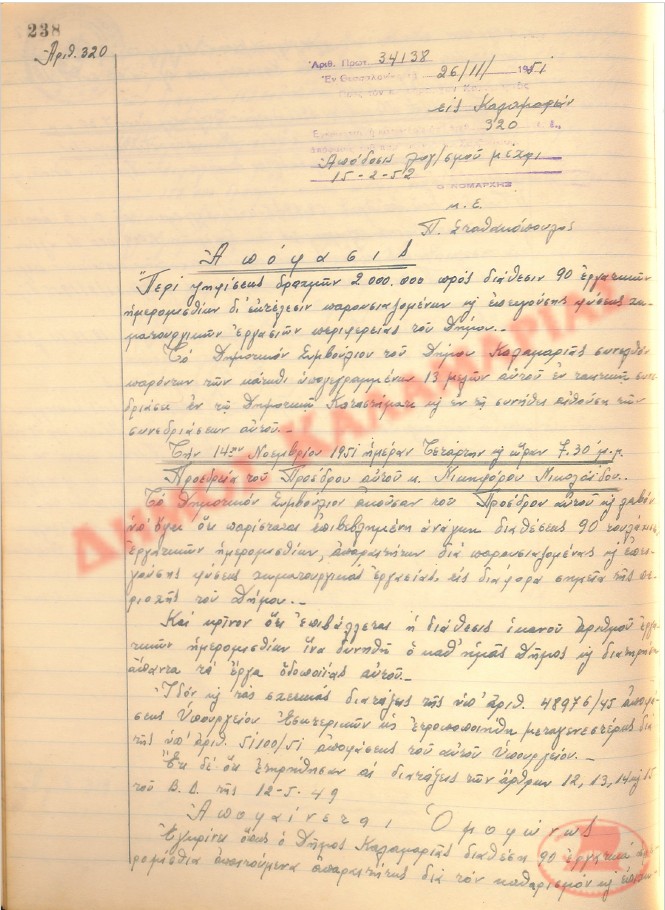 238
Ἀριθ. 320
Ἀριθ. Πρωτ. 34138
Ἐν Θεσσαλονίκῃ 26/11/1951
εἰς Καλαμαριᾶν
320
Ἀπόδοσις λογ/σμοῦ μέχρι
15-2-52
Ὁ ΝΟΜΑΡΧΗΣ
κ.ε.
Π. Σταθακόπουλος
Ἀπόφασις
Περὶ ψηφίσεως δραχμῶν 2.000.000 πρὸς διάθεσιν 90 ἐργατικῶν
ἡμερομισθίων δι' ἐκτέλεσιν παρουσιαζομένων κ ἐπειγούσης φύσεως χω-
ματουργικῶν ἐργασιῶν περιφερείας τοῦ Δήμου.-
Τὸ Δημοτικὸν Συμβούλιον τοῦ Δήμου Καλαμαριᾶς συνελθὸν
παρόντων τῶν κάτωθι ὑπογεγραμμένων 13 μελῶν αὐτοῦ ἐν τακτικῇ συνε-
δριάσει ἐν τῷ Δημοτικῷ Καταστήματι κ ἐν τῇ συνήθει αἰθούσῃ τῶν
συνεδριάσεων αὐτοῦ.-
Τὴν 14ην Νοεμβρίου 1951 ἡμέραν Τετάρτην κ ὥραν 7.30 μ.μ.
Προεδρείᾳ τοῦ Προέδρου αὐτοῦ κ. Νικηφόρου Νικολαΐδου.-
Τὸ Δημοτικὸν Συμβούλιον ἀκοῦσαν τοῦ Προέδρου αὐτοῦ κ λαβὸν
ὑπ' ὄψει ὅτι παρίσταται ἐπιβεβλημένη ἀνάγκη διαθέσεως 90 τοὐλάχισ.
ἐργατικῶν ἡμερομισθίων, ἀπαραιτήτων διὰ παρουσιαζομένας κ ἐπει-
γούσης φύσεως χωματουργικὰς ἐργασίας εἰς διάφορα σημεῖα τῆς πε-
ριοχῆς τοῦ Δήμου.-
Καὶ κρῖνον ὅτι ἐπιβάλλεται ἡ διάθεσις ἱκανοῦ ἀριθμοῦ ἐργα-
τικῶν ἡμερομισθίων ἵνα δυνηθῇ ὁ καθ' ἡμᾶς Δῆμος κ διατηρήσῃ
ἅπαντα τὰ ἔργα ὁδοποιΐας αὐτοῦ.-
Ἰδὸν κ τὰς σχετικὰς διατάξεις τῆς ὑπ' ἀριθ. 48976/45 ἀποφά-
σεως Ὑπουργείου Ἐσωτερικῶν ὡς ἐτροποποιήθη μεταγενεστέρως διὰ
τῆς ὑπ' ἀριθ. 51100/51 ἀποφάσεως τοῦ αὐτοῦ Ὑπουργείου.-
Ἔτι δὲ ὅτι ἐτηρήθησαν αἱ διατάξεις τῶν ἄρθρων 12, 13, 14 κ 15
τοῦ Β.Δ. τῆς 12-5-49
Ἀποφαίνεται Ὁμοφώνως
Ἐγκρίνει ὅπως ὁ Δῆμος Καλαμαριᾶς διαθέσῃ 90 ἐργατικὰ ἡμε-
ρομίσθια ἀπαιτούμενα ἀπαραιτήτως διὰ τὸν καθαρισμὸν κ
ΔΗΜΟΣ ΚΑΛΑΜΑΡΙΑΣ